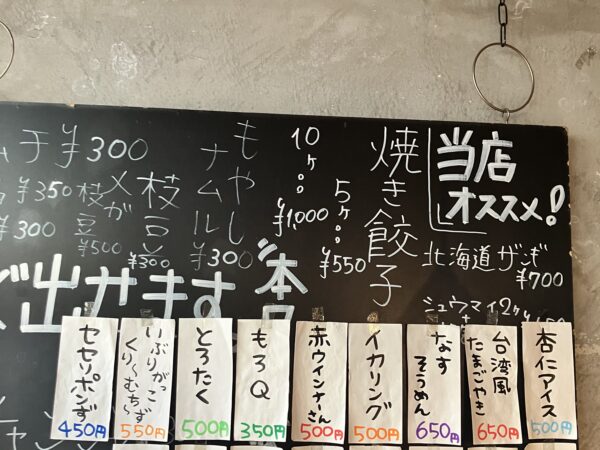 当店
オススメ!
北海道ザンギ
¥700
シュウマイ2ヶ
焼き餃子
5ヶ‥¥550
10ヶ‥¥1,000
もやし
ナムル
¥300
枝豆
¥300
メガ
枝豆
¥500
ムチ¥300
¥350
¥300
出せます
杏仁アイス
500円
台湾風
たまごやき
650円
なす
そうめん
650円
イカリング
500円
赤ウインナーさん
500円
もろQ
350円
とろたく
500円
いぶりがっこ
くり〜むち〜ず
550円
セセリポンず
450円